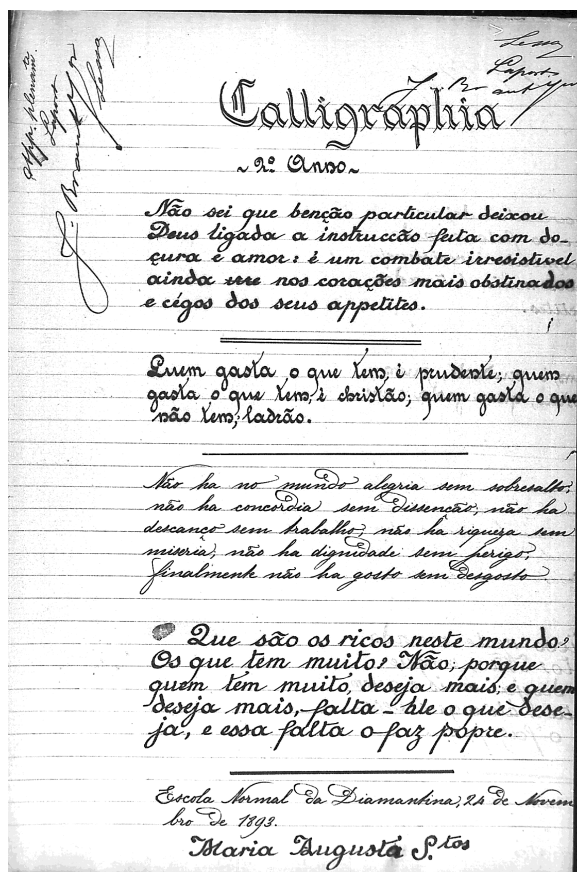 App. plenamte
Laport
J. Brant Jor
Lessa
Lessa
Laport
J. Brant Jor
Calligraphia
2º Anno
Não sei que benção particular deixou
Deus ligada a instrucção feita com do-
çura e amor: é um combate irresistivel
ainda nos corações mais obstinados
e cégos dos seus appetites.
Quem gasta o que tem, é prudente; quem
gasta o que tem, é christão; quem gasta o que
não tem, ladrão.
Não ha no mundo alegria sem sobresalto,
não ha concordia sem dissenção, não ha
descanço sem trabalho, não ha riqueza sem
miseria, não ha dignidade sem perigo,
finalmente não ha gosto sem desgosto
Que são os ricos neste mundo?
Os que tem muito? Não; porque
quem tem muito, deseja mais, e quem
deseja mais, falta-lhe o que dese-
ja, e essa falta o faz popre.
Escola Normal da Diamantina, 24 de Novem
bro de 1893.
Maria Augusta S.tos